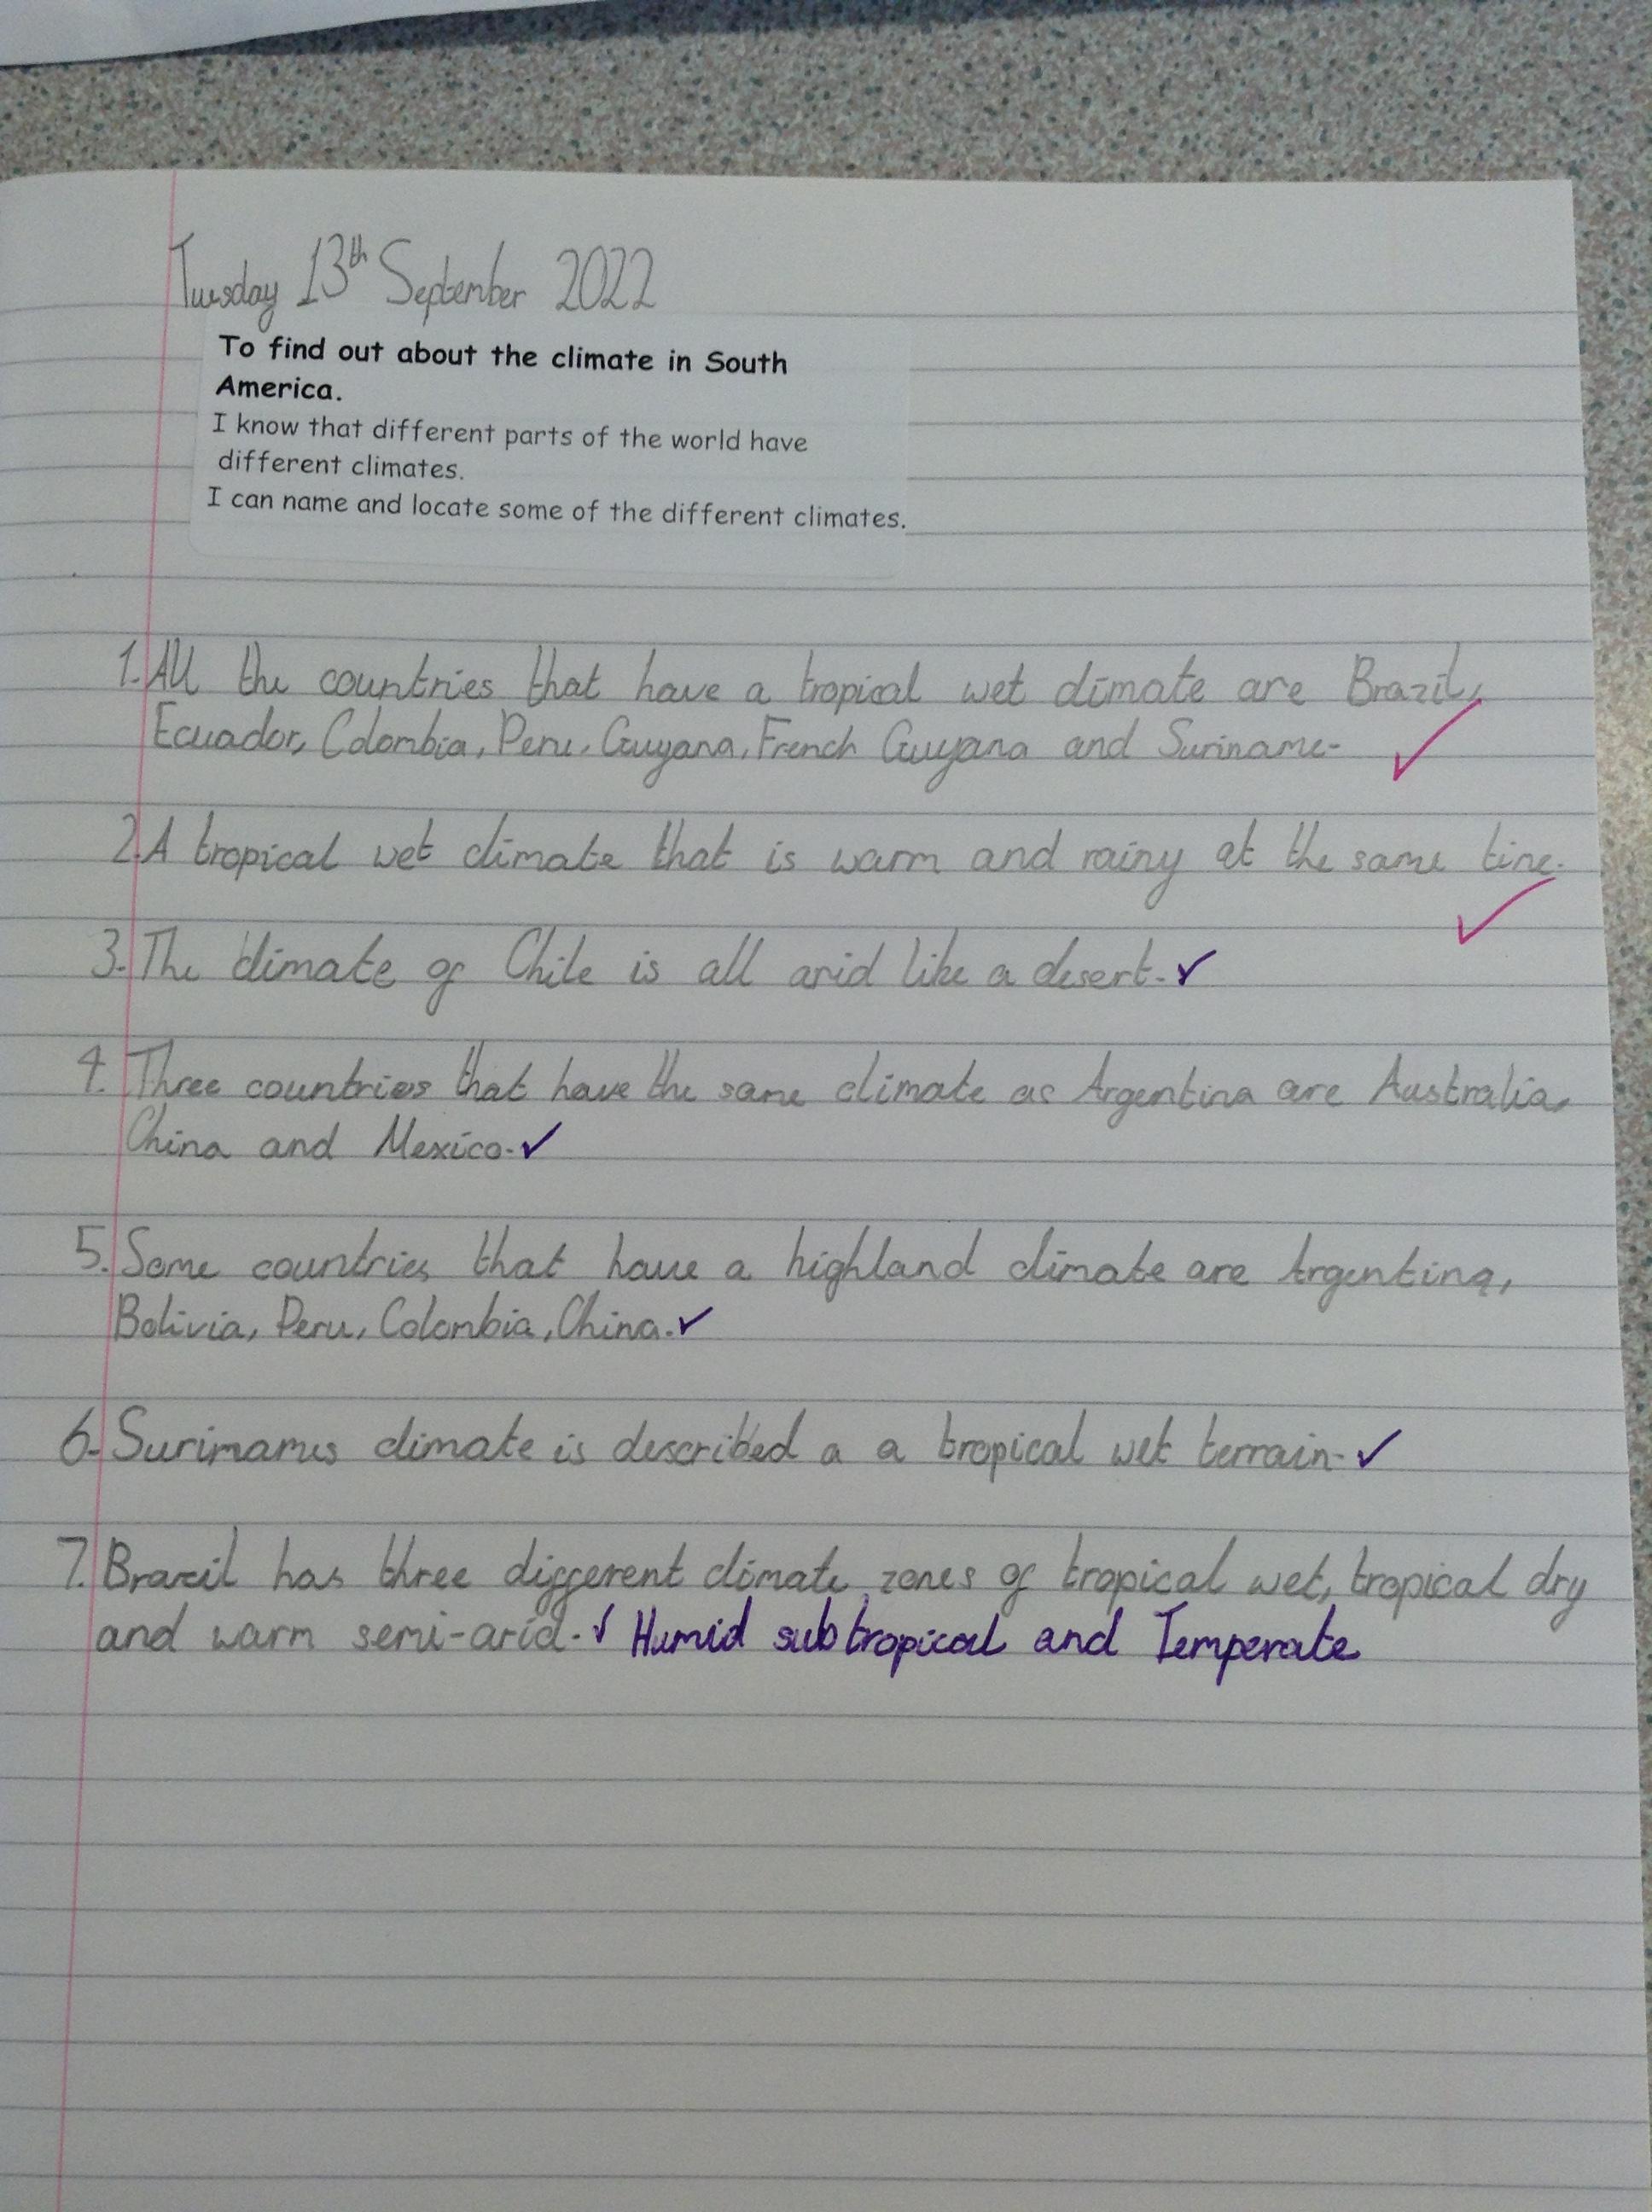 Tuesday 13th September 2022
To find out about the climate in South
America.
I know that different parts of the world have
different climates.
I can name and locate some of the different climates.
1. All the countries that have a tropical wet climate are Brazil,
Ecuador, Colombia, Peru, Guyana, French Guyana and Suriname.
2. A tropical wet climate that is warm and rainy at the same time.
3. The climate of Chile is all arid like a desert.
4. Three countries that have the same climate as Argentina are Australia,
China and Mexico.
5. Some countries that have a highland climate are Argentina,
Bolivia, Peru, Colombia, China.
6. Surinames climate is described a a tropical wet terrain.
7. Brazil has three different climate zones of tropical wet, tropical dry
and warm semi-arid. Humid subtropical and Temperate